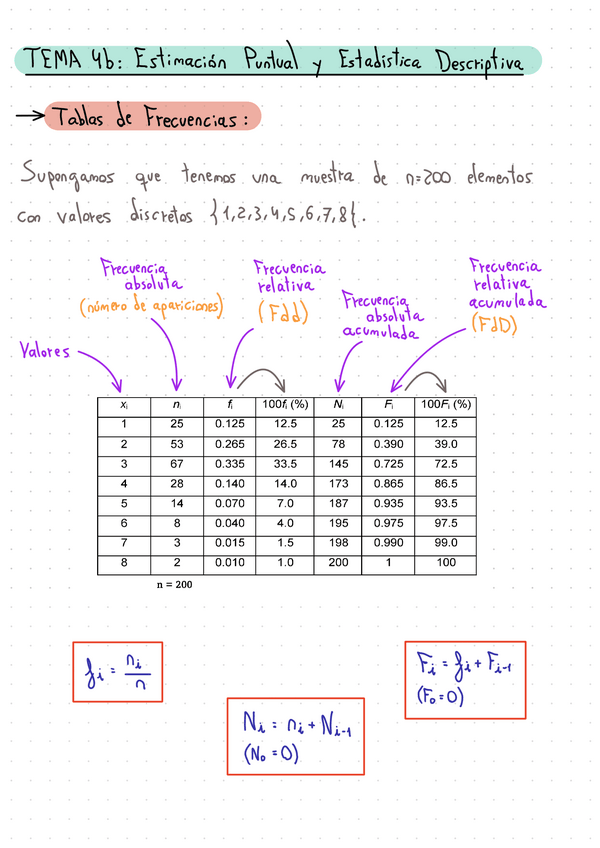 TEMA 4b: Estimación Puntual y Estadística Descriptiva
→ Tablas de Frecuencias:
Supongamos que tenemos una muestra de n=200 elementos
con valores discretos {1,2,3,4,5,6,7,8}.
Valores
Frecuencia absoluta
(número de apariciones)
Frecuencia relativa
(Fdd)
Frecuencia absoluta acumulada
Frecuencia relativa acumulada
(FdD)
xᵢ nᵢ fᵢ 100fᵢ (%) Nᵢ Fᵢ 100Fᵢ (%)
1 25 0.125 12.5 25 0.125 12.5
2 53 0.265 26.5 78 0.390 39.0
3 67 0.335 33.5 145 0.725 72.5
4 28 0.140 14.0 173 0.865 86.5
5 14 0.070 7.0 187 0.935 93.5
6 8 0.040 4.0 195 0.975 97.5
7 3 0.015 1.5 198 0.990 99.0
8 2 0.010 1.0 200 1 100
n = 200
fᵢ = nᵢ/n
Nᵢ = nᵢ + Nᵢ₋₁
(N₀ = 0)
Fᵢ = fᵢ + Fᵢ₋₁
(F₀ = 0)